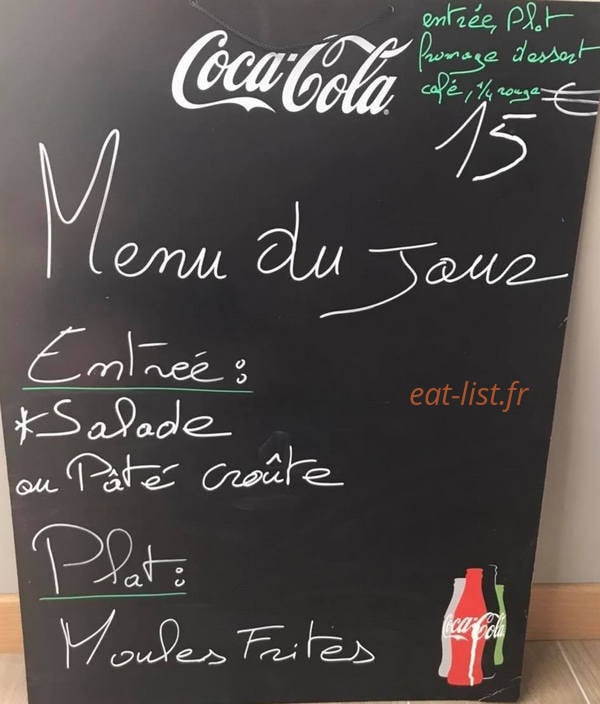 Coca-Cola
entrée, Plat
fromage dessert
café, 1/4 rouge
15€
Menu du Jour
Entrée :
*Salade
ou Pâté croûte
eat-list.fr
Plat :
Moules Frites
Coca-Cola